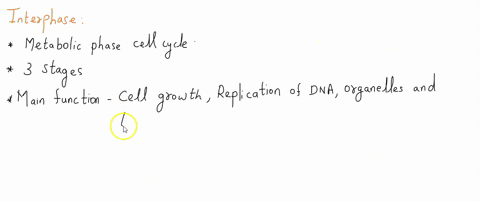 Interphase:
* Metabolic phase cell cycle.
* 3 stages
* Main function - Cell growth, Replication of DNA, organelles and